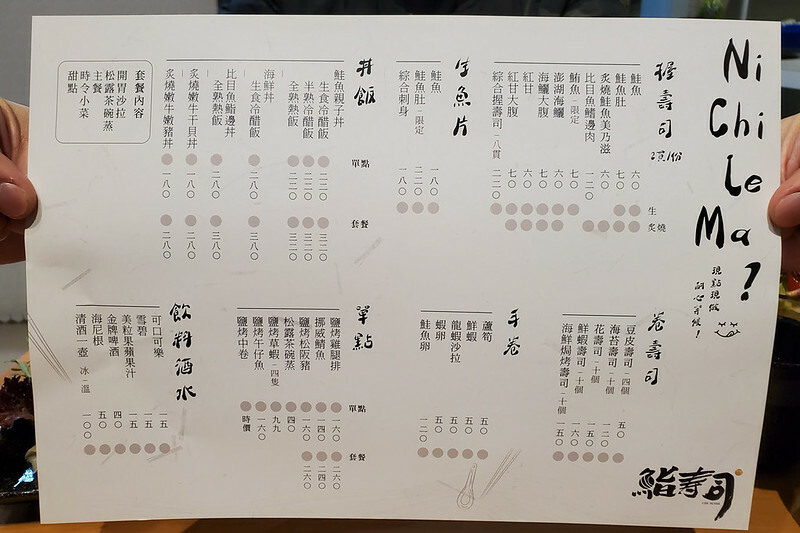 Ni
Chi
Le
Ma?
現點現做
耐心等候!
握壽司 2貫/份
生
炙燒
鮭魚 六〇
鮭魚肚 七〇
炙燒鮭魚美乃滋 六〇
比目魚鰭邊肉 一二〇
鮪魚-限定
澎湖海鱺 六〇
海鱺大腹 七〇
紅甘 六〇
紅甘大腹 七〇
綜合握壽司-八貫 二二〇
生魚片
鮭魚 一八〇
鮭魚肚-限定 二二〇
綜合刺身 一八〇
丼飯
單點
套餐
鮭魚親子丼
生食冷醋飯 二二〇 三二〇
半熟冷醋飯 二二〇 三二〇
全熟熱飯 二二〇 三二〇
海鮮丼
生食冷醋飯 二八〇 三八〇
比目魚鰭邊丼
全熟熱飯 二八〇 三八〇
炙燒嫩牛干貝丼 一八〇 二八〇
炙燒嫩牛嫩豬丼 一八〇 二八〇
套餐內容
開胃沙拉
松露茶碗蒸
主餐
時令小菜
甜點
卷壽司
豆皮壽司-四個 五〇
海苔壽司-十個 一二〇
花壽司-十個 一〇〇
鮮蝦壽司-十個 一五〇
海鮮焗烤壽司-十個 一五〇
手卷
蘆筍 五〇
鮮蝦 五〇
龍蝦沙拉 五〇
蝦卵 五〇
鮭魚卵 一二〇
單點
單點
套餐
鹽烤雞腿排 一六〇 二六〇
挪威鯖魚 一四〇 二四〇
鹽烤松阪豬 一六〇 二六〇
松露茶碗蒸 四〇
鹽烤草蝦-四隻 九九
鹽烤午仔魚 一六〇
鹽烤中卷 時價
飲料酒水
可口可樂 一五
雪碧 一五
美粒果蘋果汁 一五
金牌啤酒 四〇
海尼根 五〇
清酒一壺 冰-溫 一〇〇
鮨壽司